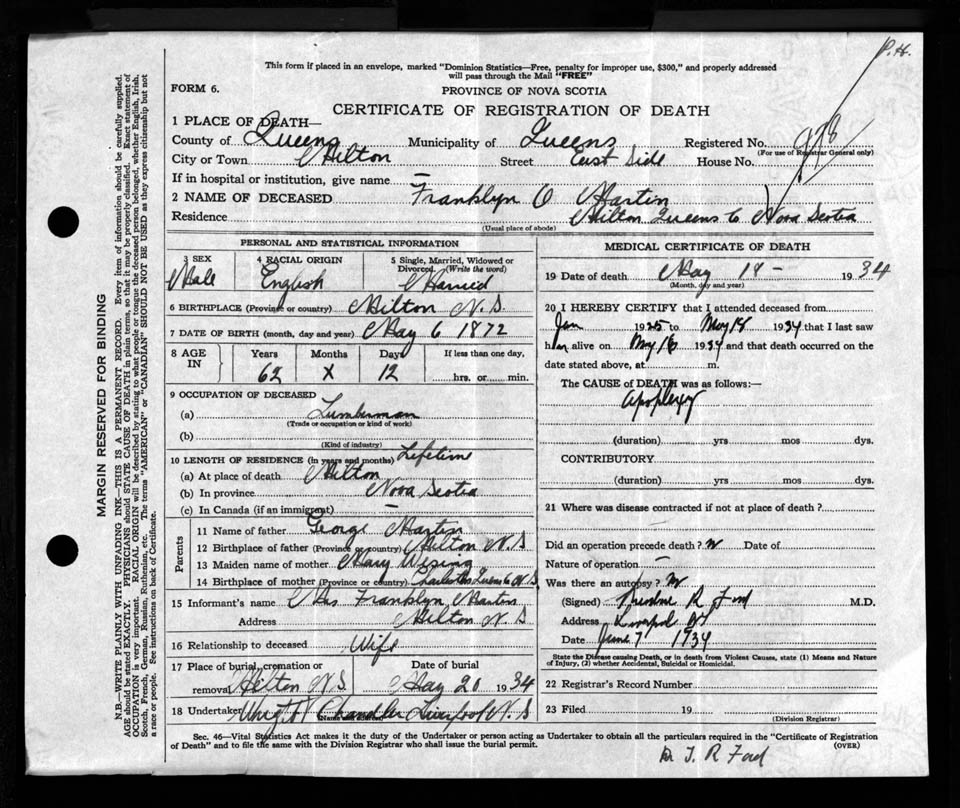 P.H.
This form if placed in an envelope, marked "Dominion Statistics—Free, penalty for improper use, $300," and properly addressed
will pass through the Mail "FREE"
FORM 6.
PROVINCE OF NOVA SCOTIA
CERTIFICATE OF REGISTRATION OF DEATH
1 PLACE OF DEATH—
County of Queens Municipality of Queens Registered No. 978
(For use of Registrar General only)
City or Town Milton Street East Side House No.
If in hospital or institution, give name —
2 NAME OF DECEASED Franklyn O Martin
Residence Milton Queens Co Nova Scotia
(Usual place of abode)
PERSONAL AND STATISTICAL INFORMATION
3 SEX Male
4 RACIAL ORIGIN English
5 Single, Married, Widowed or Divorced. (Write the word) Married
6 BIRTHPLACE (Province or country) Milton N.S.
7 DATE OF BIRTH (month, day and year) May 6 1872
8 AGE IN Years 62 Months X Days 12 If less than one day, hrs. or min.
9 OCCUPATION OF DECEASED
(a) Lumberman
(Trade or occupation or kind of work)
(b)
(Kind of industry)
10 LENGTH OF RESIDENCE (in years and months) Lifetime
(a) At place of death Milton
(b) In province Nova Scotia
(c) In Canada (if an immigrant) —
Parents
11 Name of father George Martin
12 Birthplace of father (Province or country) Milton N S
13 Maiden name of mother Mary
14 Birthplace of mother (Province or country) Queens Co N.S.
15 Informant's name Mrs Franklyn Martin
Address Milton N S
16 Relationship to deceased Wife
17 Place of burial, cremation or removal Milton N.S. Date of burial May 20 1934
18 Undertaker Chandler Liverpool N.S
MEDICAL CERTIFICATE OF DEATH
19 Date of death May 18 — 1934
(Month, day and year)
20 I HEREBY CERTIFY that I attended deceased from
Jan 1925 to May 18 1934 that I last saw
him alive on May 16 1934 and that death occurred on the
date stated above, at m.
The CAUSE of DEATH was as follows:—
Apoplexy
(duration) yrs mos dys.
CONTRIBUTORY
(duration) yrs mos dys.
21 Where was disease contracted if not at place of death?
Did an operation precede death? N Date of
Nature of operation —
Was there an autopsy? N
(Signed) R Ford M.D.
Address Liverpool NS
Date June 7 1934
State the Disease causing Death, or in death from Violent Causes, state (1) Means and Nature
of Injury, (2) whether Accidental, Suicidal or Homicidal.
22 Registrar's Record Number
23 Filed 19
(Division Registrar)
Sec. 46—Vital Statistics Act makes it the duty of the Undertaker or person acting as Undertaker to obtain all the particulars required in the "Certificate of Registration
of Death" and to file the same with the Division Registrar who shall issue the burial permit.
(OVER)
Dr J. R Ford
MARGIN RESERVED FOR BINDING
N.B.—WRITE PLAINLY WITH UNFADING INK—THIS IS A PERMANENT RECORD. Every item of information should be carefully supplied.
AGE should be stated EXACTLY. PHYSICIANS should STATE CAUSE OF DEATH in plain terms, so that it may be properly classified. Exact statement of
OCCUPATION is very important. RACIAL ORIGIN will be described by stating to what people or tongue the deceased person belonged, whether English, Irish,
Scotch, French, German, Russian, Ruthenian, etc. The terms "AMERICAN" or "CANADIAN" SHOULD NOT BE USED as they express citizenship but not
a race or people. See instructions on back of Certificate.